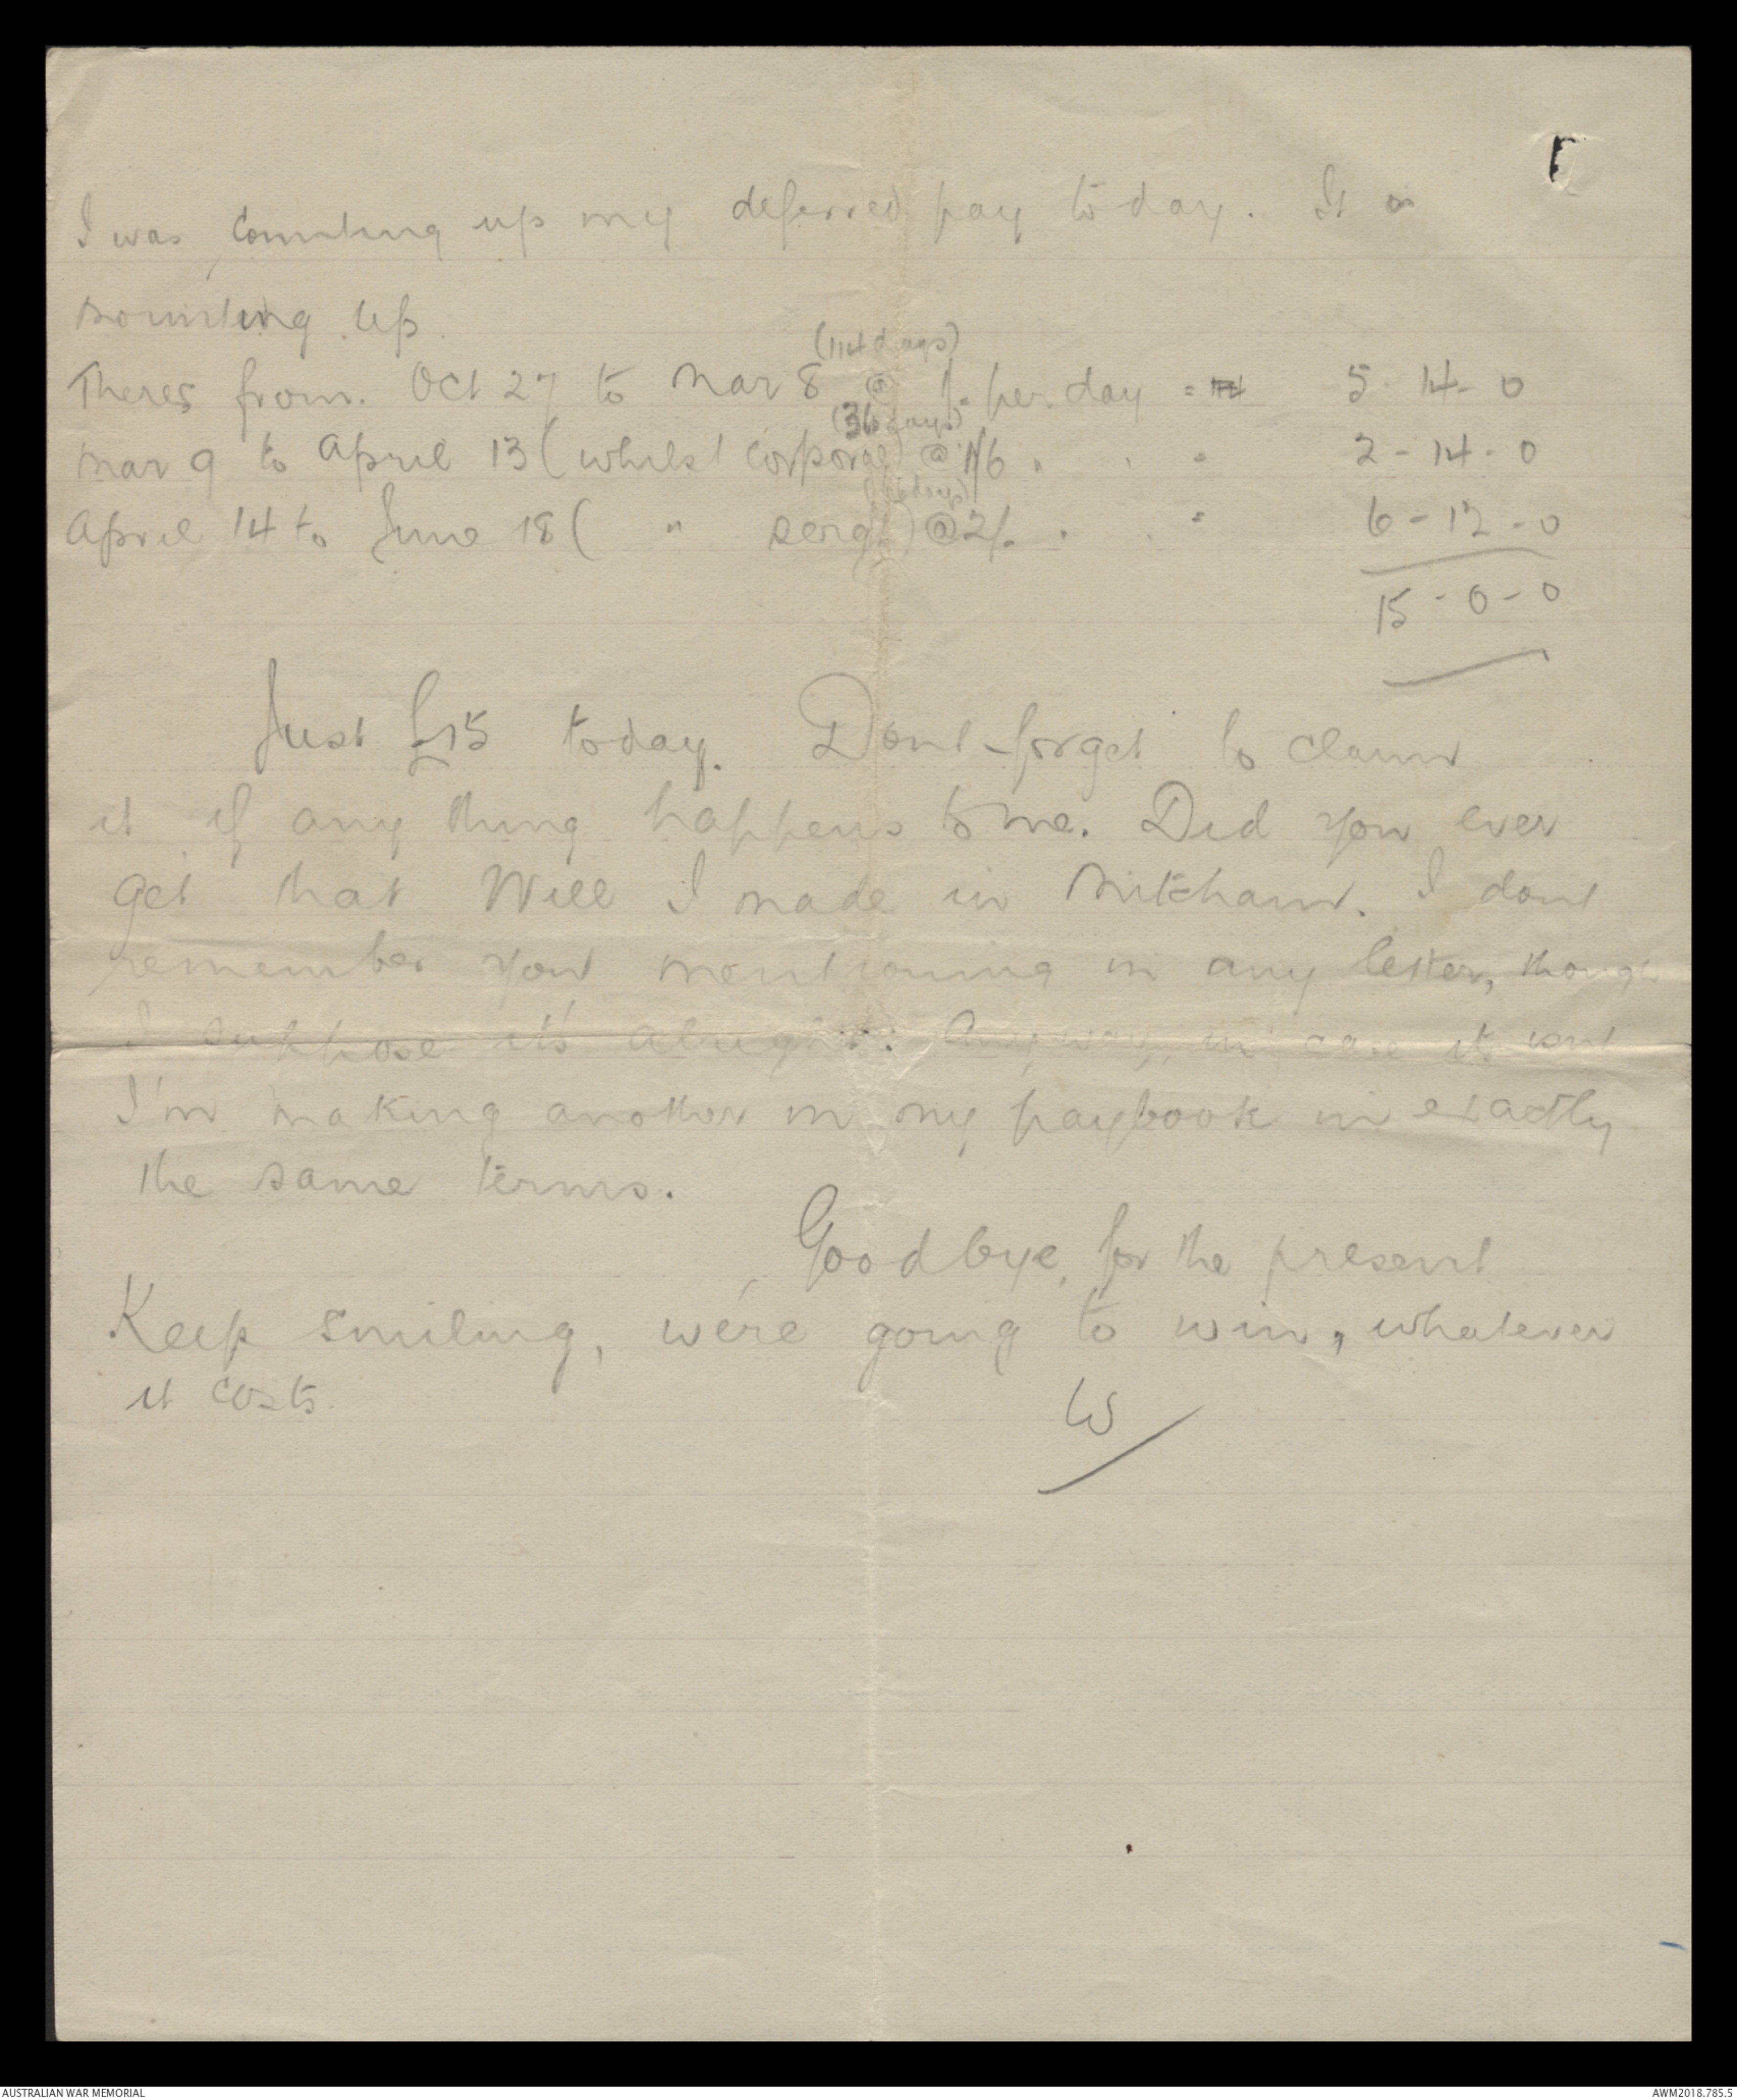 I was counting up my deferred pay today. It is
mounting up.
(114 days)
Theres from. Oct 27 to Mar 8 @ 1/- per day = 5-14-0
(36 days)
Mar 9 to April 13 (whilst corporal) @ 1/6 " " = 2-14-0
(66 days)
April 14 to June 18 ( " sergt) @ 2/- " " = 6-12-0
15-0-0
Just £15 today. Dont forget to claim
it if any thing happens to me. Did you ever
get that Will I made in Mitcham. I dont
remember you mentioning in any letter, though
I suppose it's alright. Anyway, in case it isnt
I'm making another in my paybook in exactly
the same terms.
Goodbye, for the present
Keep smiling, we're going to win, whatever
it costs.
W
AUSTRALIAN WAR MEMORIAL
AWM2018.785.5